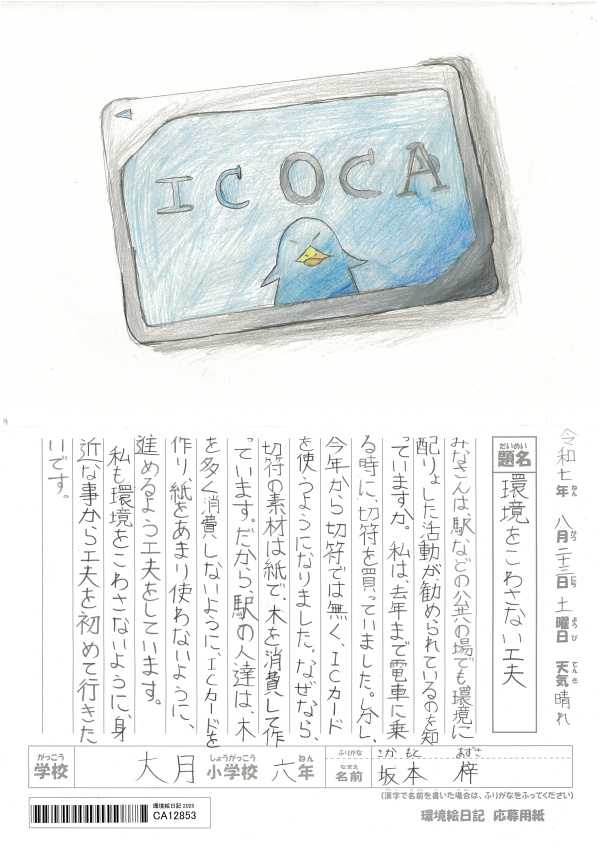 ICOCA
令和七年 八月二十三日 土曜日 天気 晴れ
ねん がつ にち ようび てんき
だいめい
題名 環境をこわさない工夫
みなさんは、駅などの公共の場でも環境に
配りょした活動が勧められているのを知
っていますか。私は、去年まで電車に乗
る時に、切符を買っていました。しかし、
今年から切符では無く、ICカード
を使うようになりました。なぜなら、
切符の素材は紙で、木を消費して作
っています。だから、駅の人達は、木
を多く消費しないように、ICカードを
作り、紙をあまり使わないように、
進めるよう工夫をしています。
私も環境をこわさないように、身
近な事から工夫を初めて行きた
いです。
がっこう
学校
大月
しょうがっこう
小学校
六
ねん
年
ふりがな
さか もと あずさ
なまえ
名前
坂本 梓
(漢字で名前を書いた場合は、ふりがなをふってください)
環境絵日記 2025
CA12853
環境絵日記 応募用紙